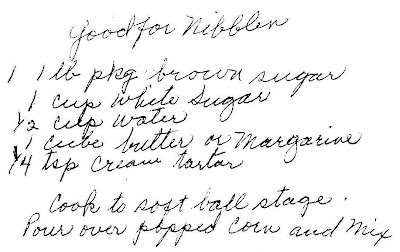 Good for Nibblen
1 1 lb pkg brown sugar
1 cup white Sugar
1/2 cup water
1 cube butter or Margarine
1/4 tsp cream tartar
Cook to soft ball stage.
Pour over popped corn and mix